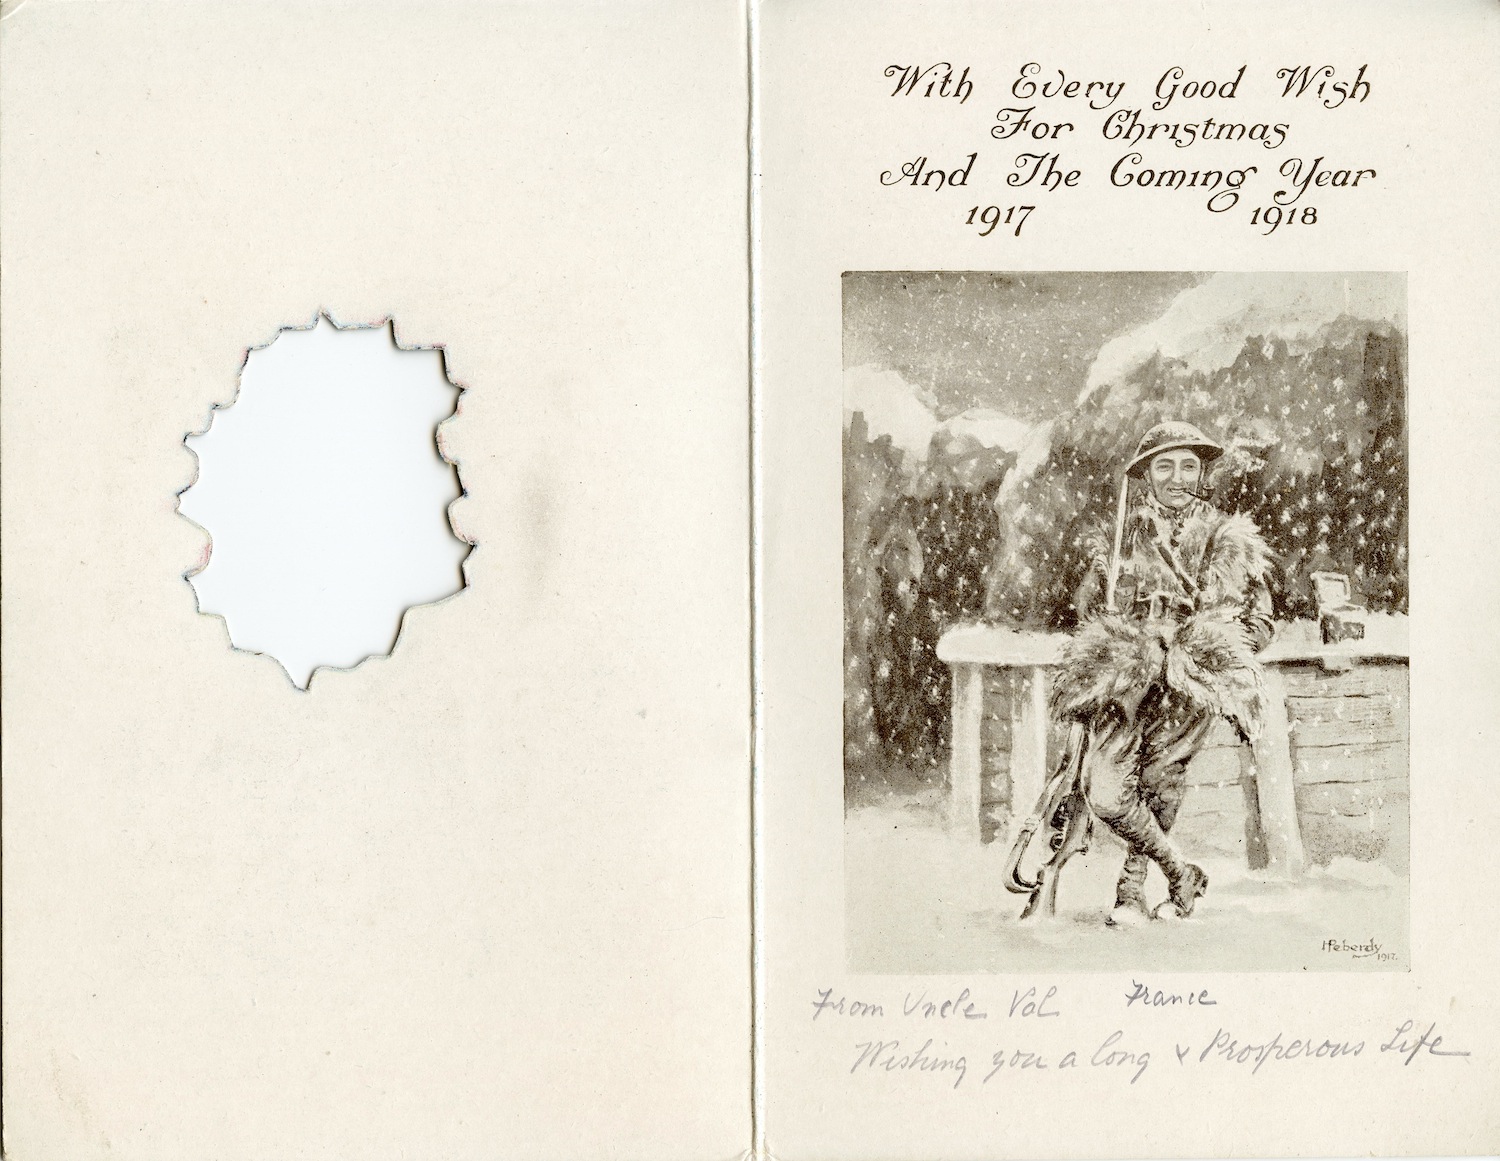 With Every Good Wish
For Christmas
And The Coming Year
1917 1918
HPeberdy
1917.
From Uncle Val France
Wishing you a long & Prosperous Life